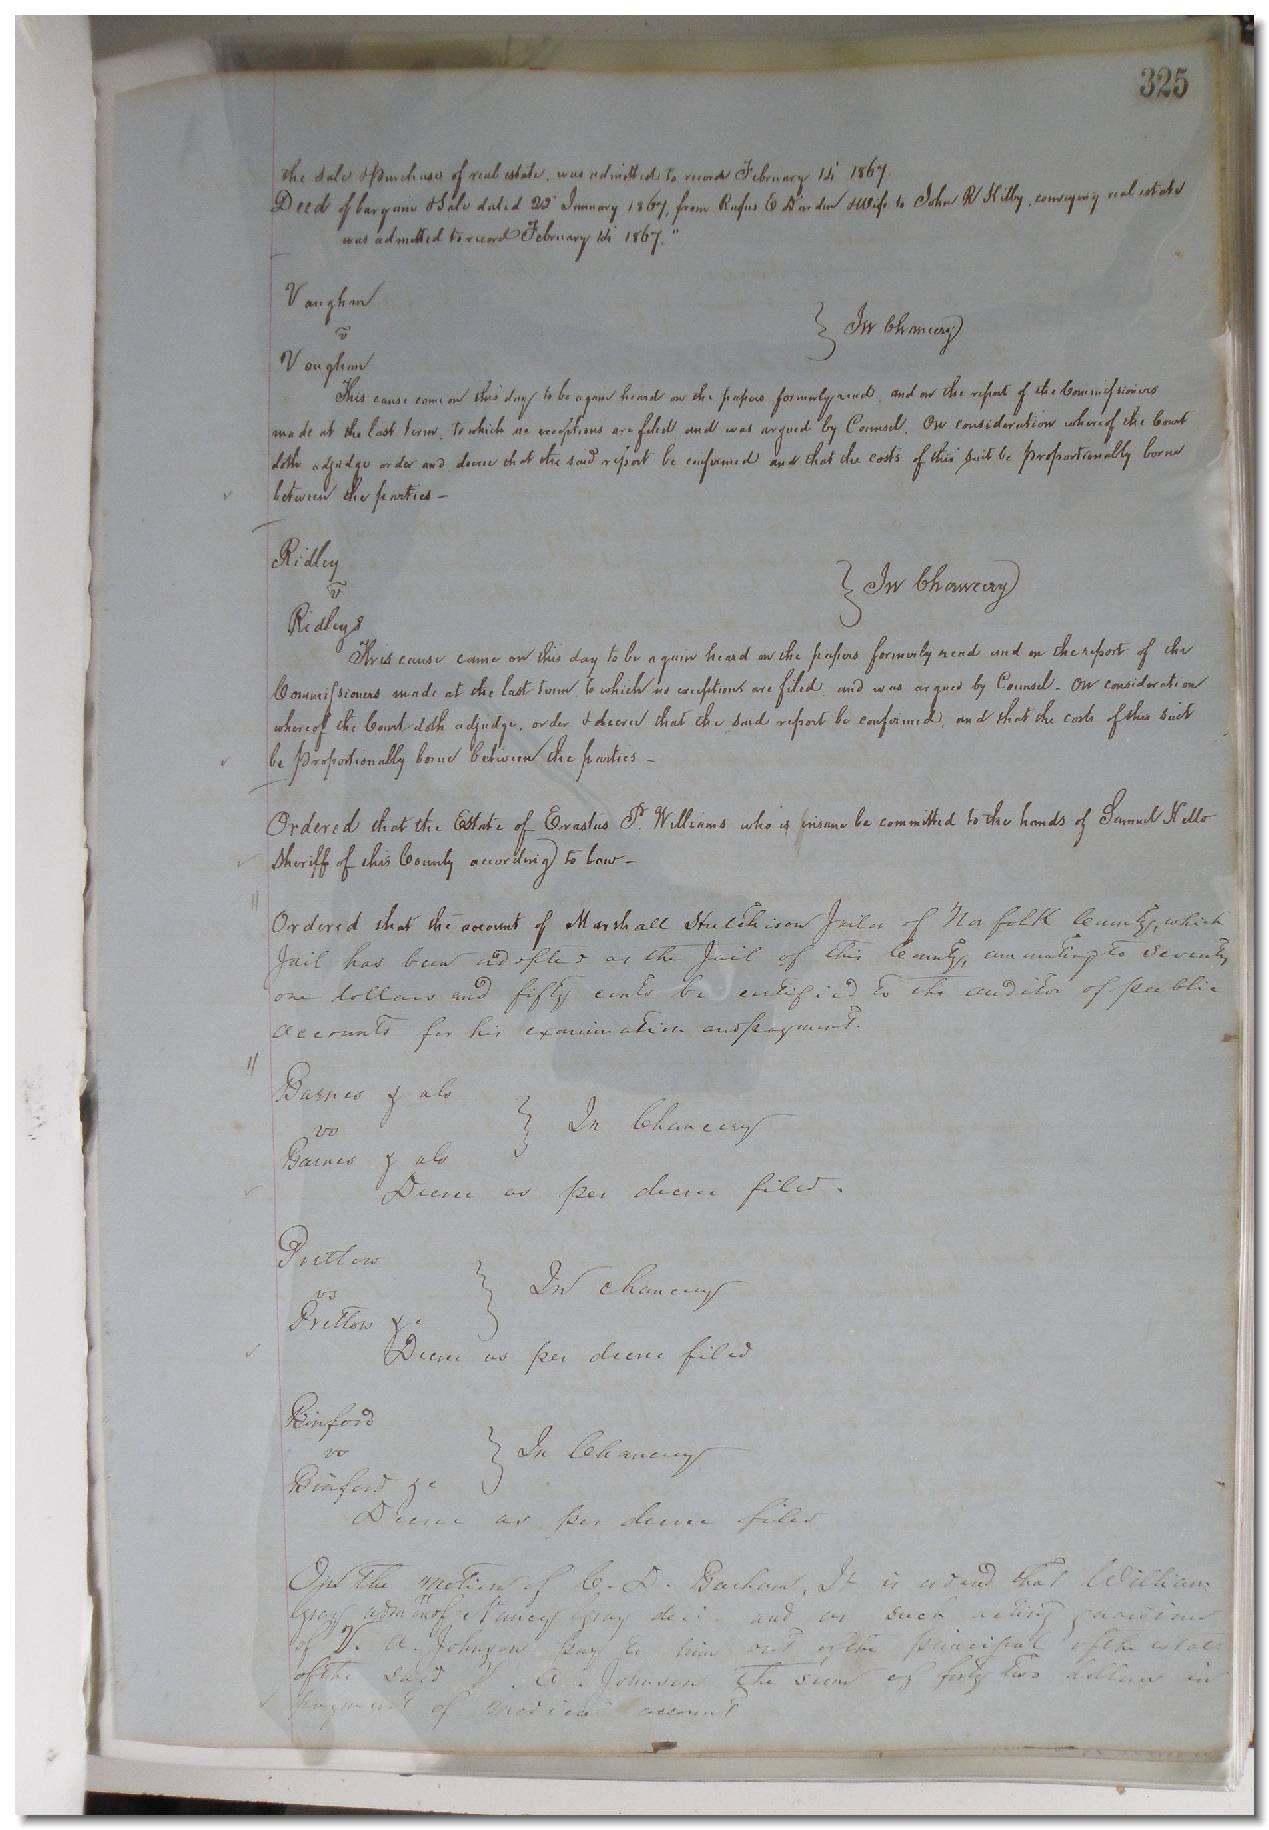 325
the sale & purchase of real estate, was admitted to record February 14 1867.
Deed of bargain & Sale dated 25 January 1867, from Rufus E Darden & Wife to John R Kilby, conveying real estate
was admitted to record February 14 1867."
Vaughan
v
Vaughan
} In Chancery
This cause come on this day to be again heard on the papers formerly read, and on the report of the Commissioners
made at the last term, to which no exceptions are filed and was argued by Counsel. On consideration whereof the Court
doth adjudge order and decree that the said report be confirmed and that the costs of this suit be proportionably borne
between the parties -
Ridley
v
Ridleys
} In Chancery
This cause came on this day to be again heard on the papers formerly read and on the report of the
Commissioners made at the last term to which no exceptions are filed, and was argued by Counsel - On consideration
whereof the Court doth adjudge, order & decree that the said report be confirmed, and that the costs of this suit
be proportionally borne between the parties -
Ordered that the Estate of Erastus P. Williams who is insane be committed to the hands of Samuel Kello
Sheriff of this County according to Law -
Ordered that the account of Marshall Hutchison Jailor of Norfolk County, which
Jail has been adopted as the Jail of this County, amounting to Seventy
one dollars and fifty cents be certified to the auditor of public
accounts for his examination and payment.
Barnes & als
vs
Barnes & als
} In Chancery
Decree as per decree filed.
Pretlow
vs
Pretlow &c
} In Chancery
Decree as per decree filed
Binford
vs
Binford &c
} In Chancery
Decree as per decree filed
On the motion of C. D. Barham, It is ordered that William
Gray admr of Nancy Gray dec. and as such acting guardian
of V. A. Johnson pay to him out of the principal of the estate
of the said V. A. Johnson the sum of forty two dollars in
payment of medical account